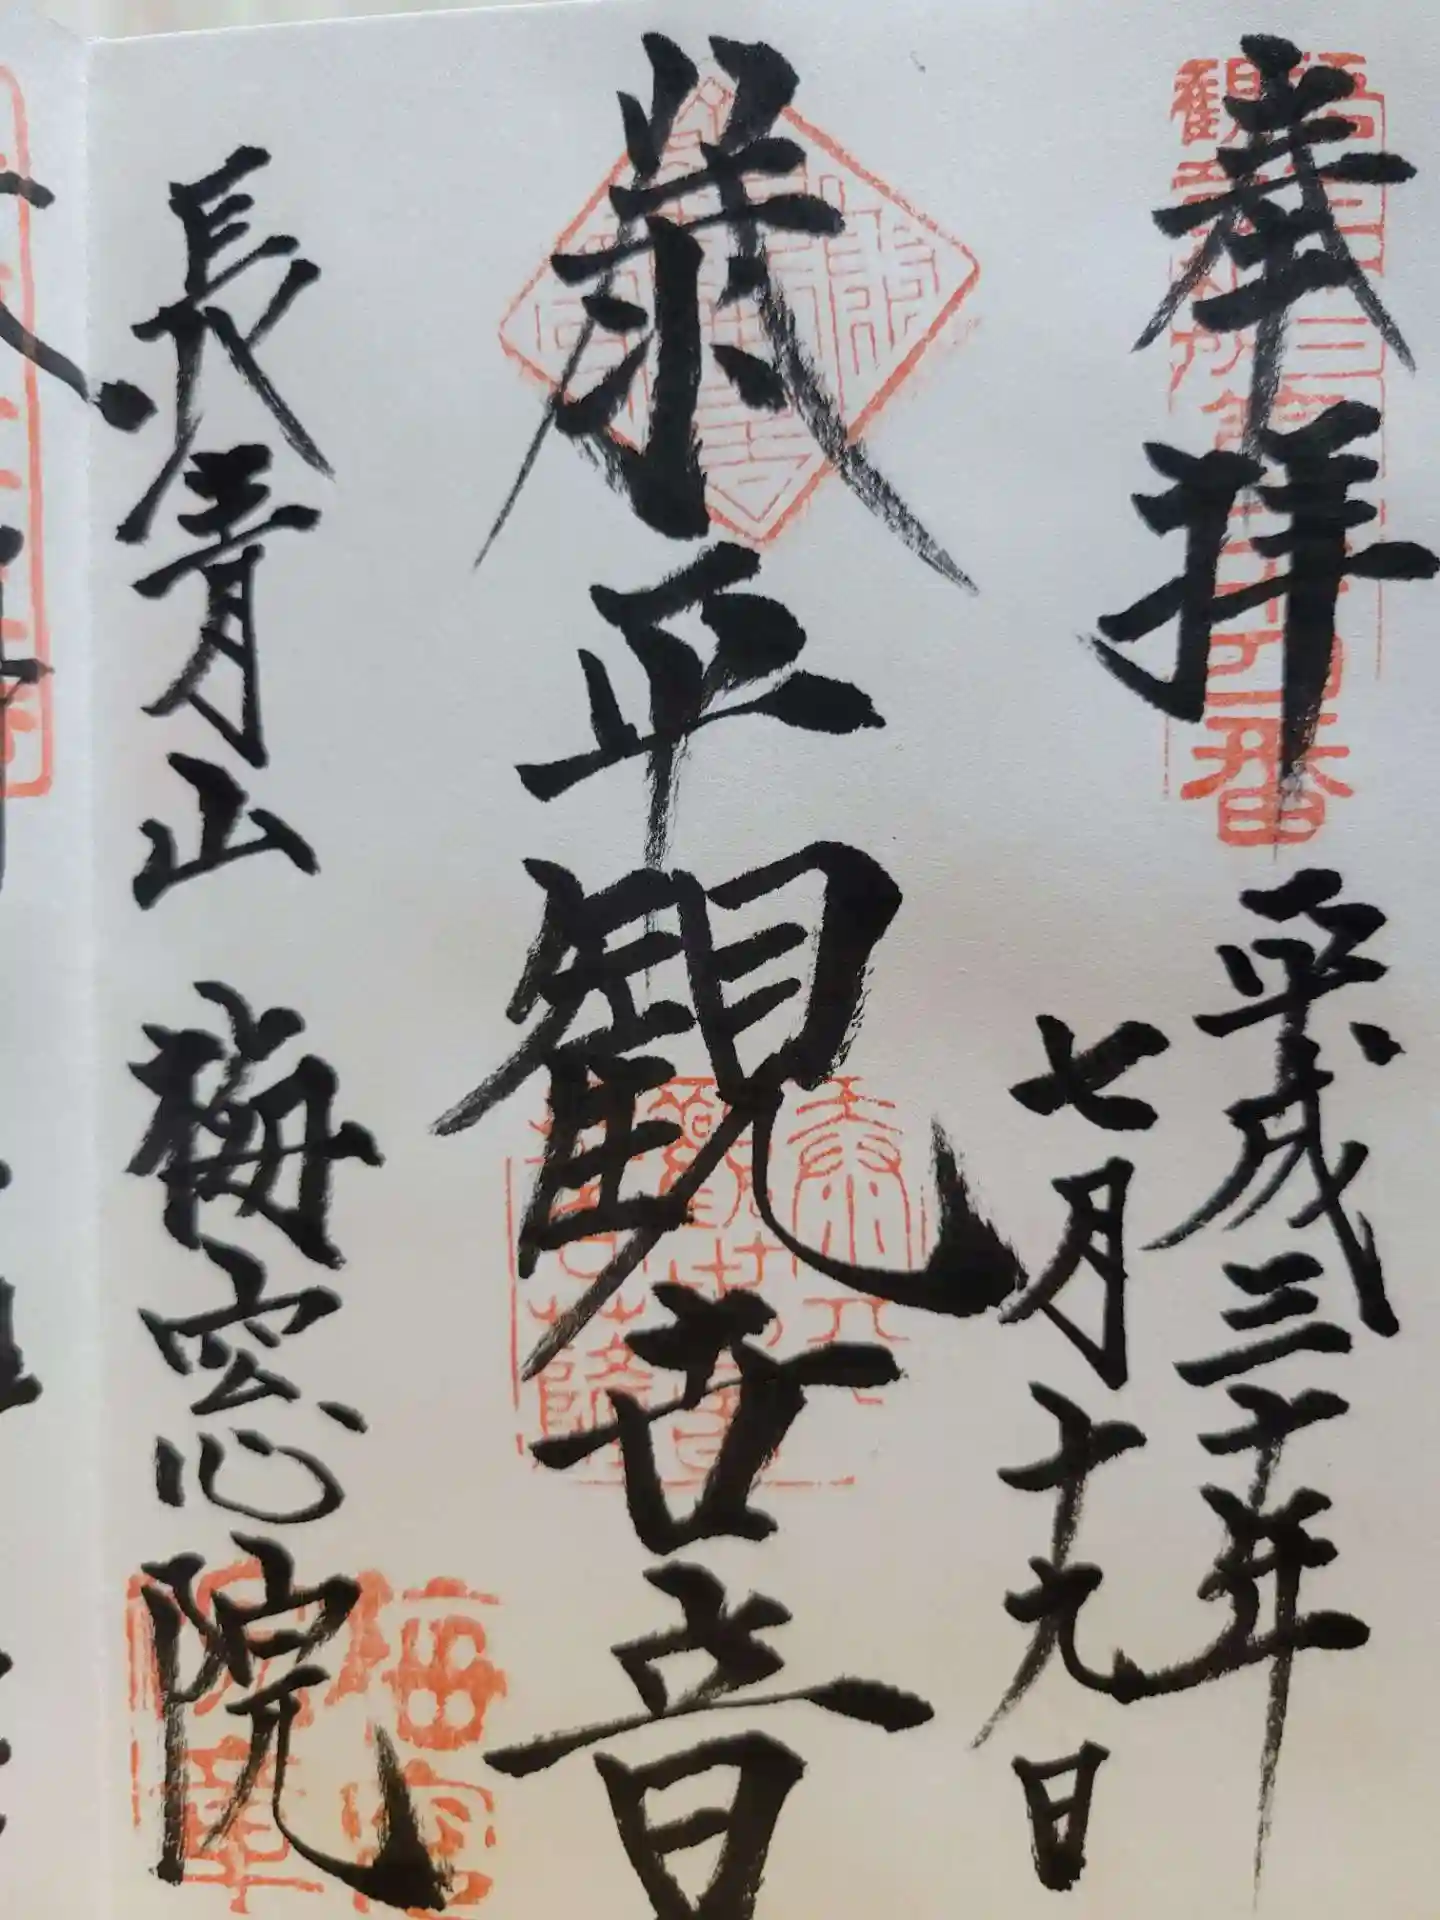 奉拝
平成三十年
七月十九日
泰平観世音
長青山 梅窓院
梅窓
院章